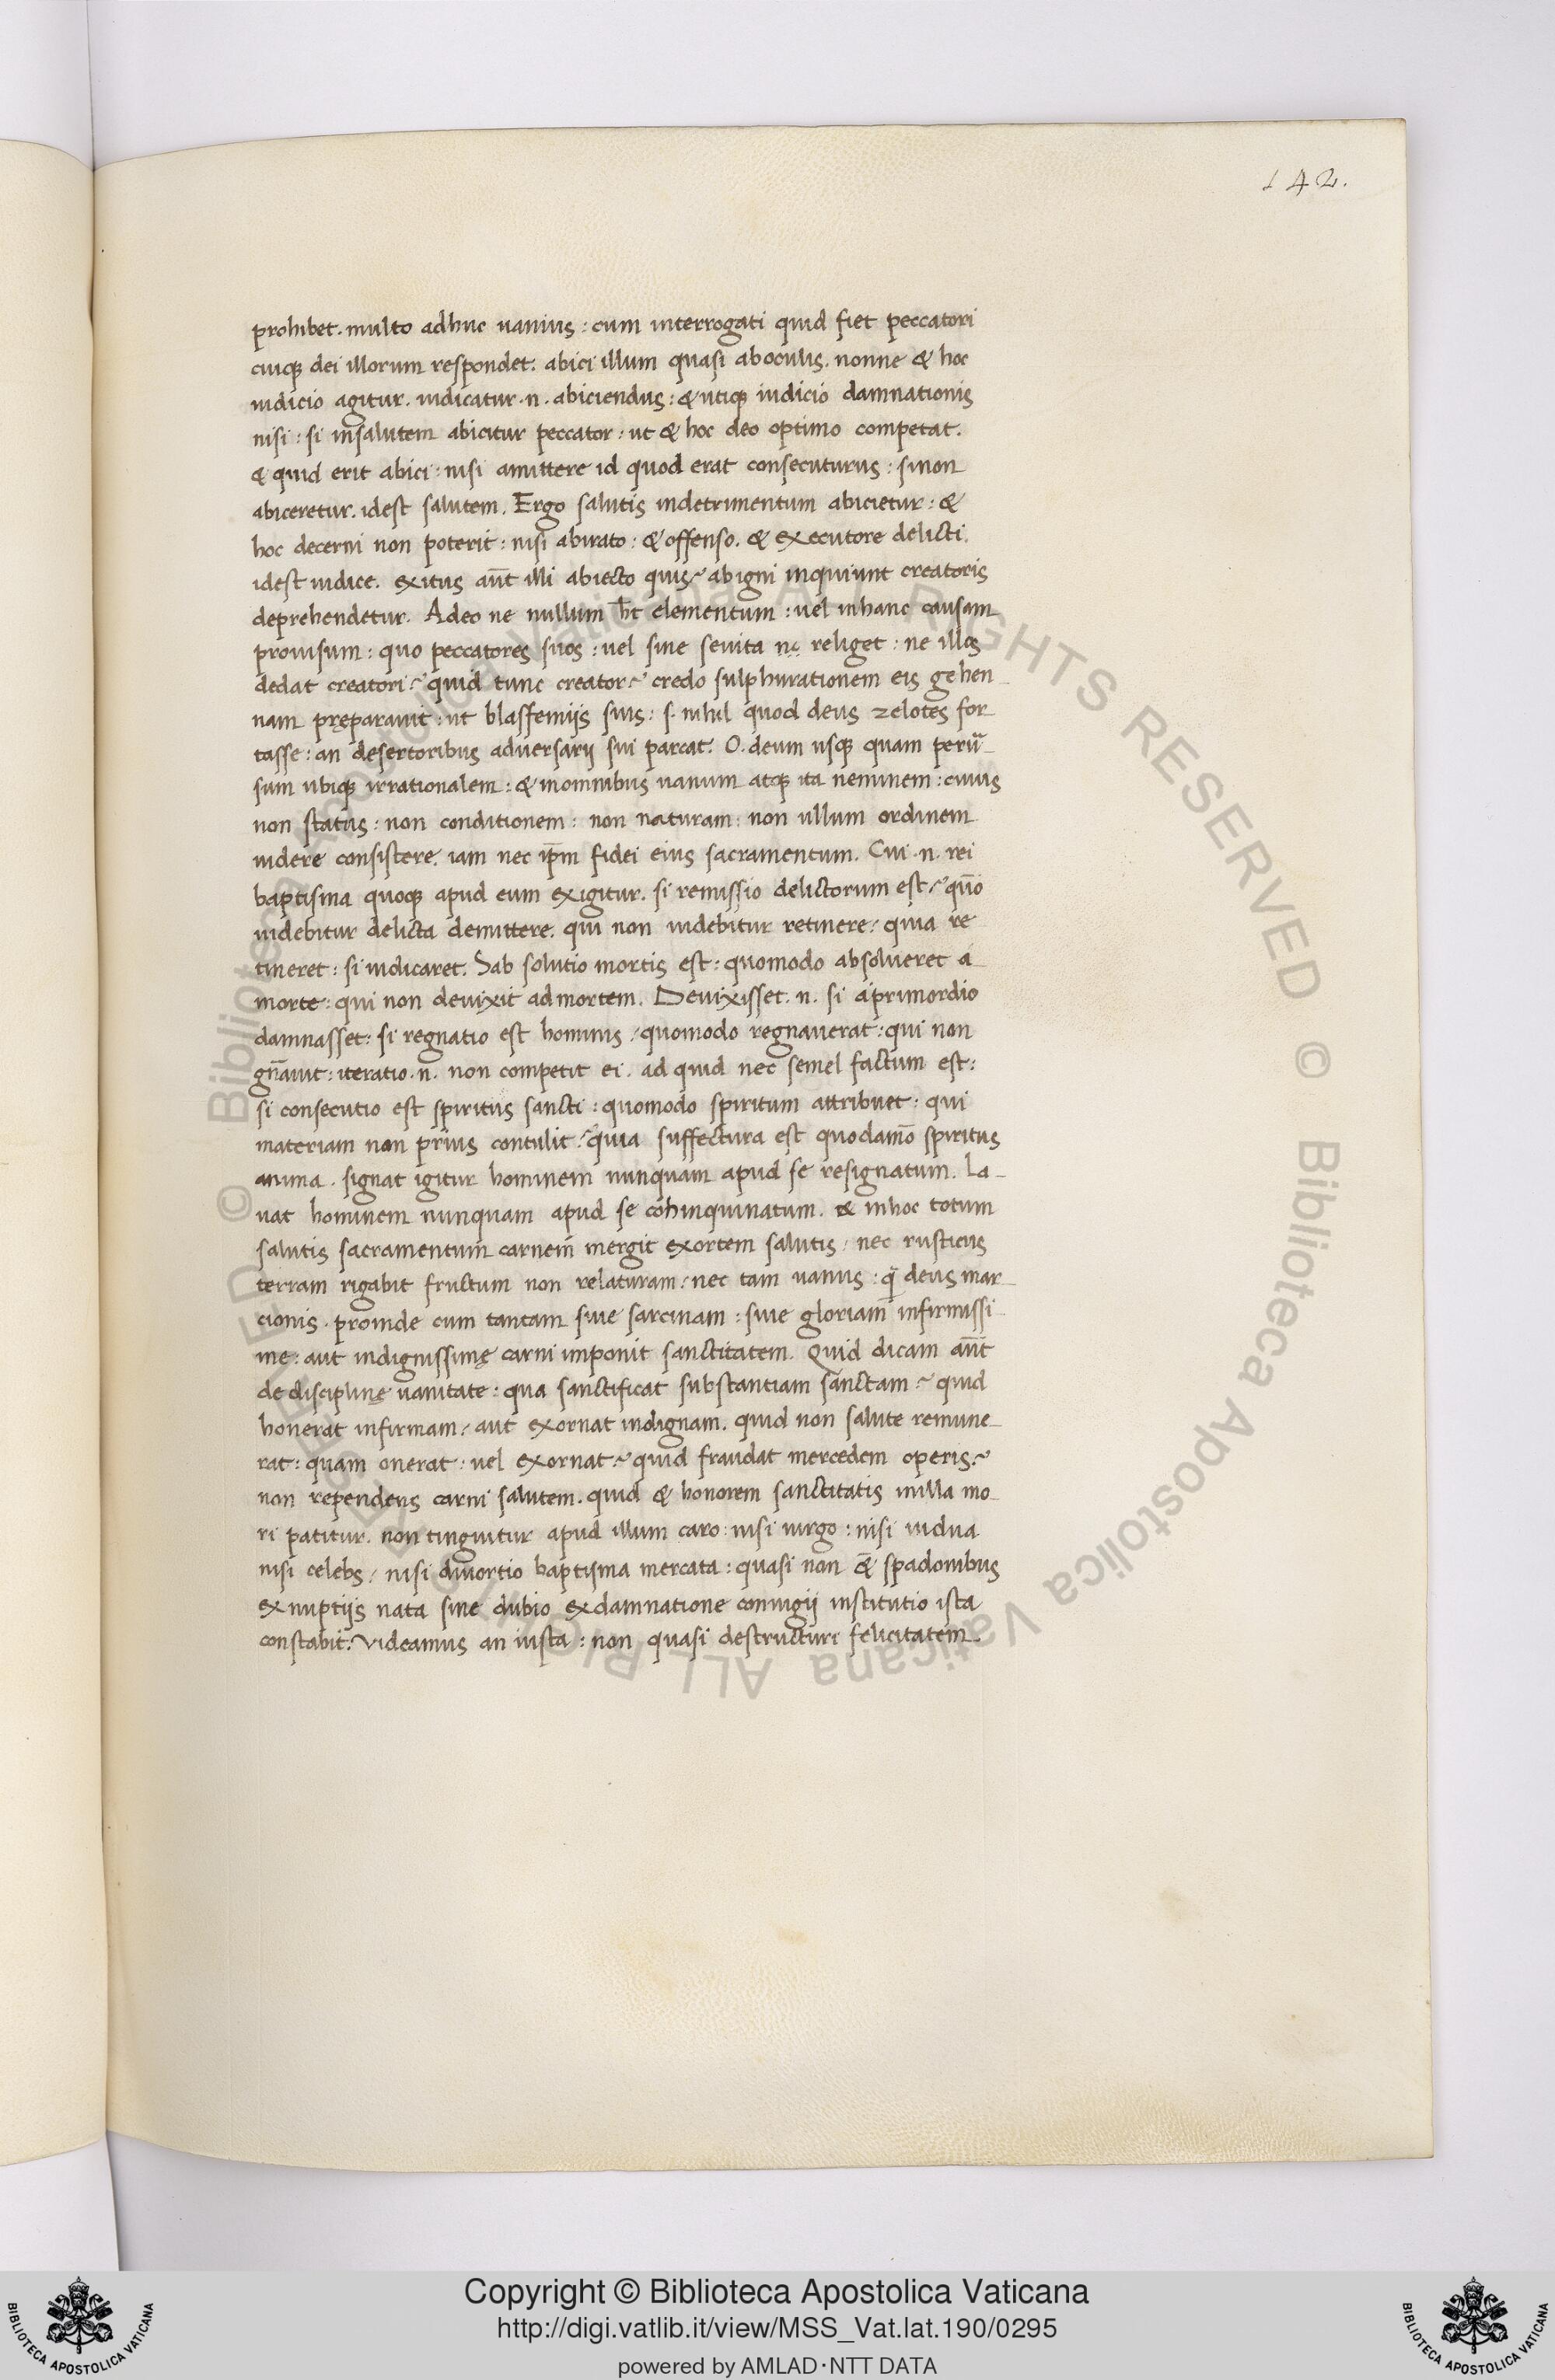 142.
prohibet. multo adhuc uanius: cum interrogati quid fiet peccatori
cuiqȝ dei illorum respondet. abici illum quasi aboculis. nonne & hoc
iudicio agitur. iudicatur .n. abiciendus: & utiqȝ iudicio damnationis
nisi: si insalutem abicitur peccator: ut & hoc deo optimo competat.
& quid erit abici: nisi amittere id quod erat consecuturus: sinon
abiceretur. idest salutem. Ergo salutis indetrimentum abicietur: &
hoc decerni non poterit: nisi abirato: & offenso. & executore delicti.
idest iudice. exitus aūt illi abiecto quis? abigni inquiunt creatoris
deprehendetur. Adeo ne nullum h̄t elementum: uel inhanc causam
prouisum: quo peccatores suos: uel sine seuita religet: ne illos
dedat creatori? quid tunc creator? credo sulphurationem eis gehen
nam pręparauit: ut blasfemijs suis: s. nihil quod deus zelotes for
tasse: an desertoribus aduersarij sui parcat. O. deum usqȝ quam peru̅
sum ubiqȝ irrationalem: & inomnibus uanum atqȝ ita neminem: cuius
non status: non conditionem: non naturam: non ullum ordinem
uidere consistere. iam nec ip̄m fidei eius sacramentum. Cui .n. rei
baptisma quoqȝ apud eum exigitur. si remissio delictorum est? quō
uidebitur delicta demittere. qui non uidebitur retinere: quia re
tineret: si iudicaret. Sab solutio mortis est: quomodo absolueret a
morte: qui non deuixit admortem. Deuixisset .n. si a primordio
damnasset: si regnatio est hominis: quomodo regnauerat: qui non
gn̄auit: iteratio .n. non competit ei. ad quid nec semel factum est:
si consecutio est spiritus sancti: quomodo spiritum attribuet: qui
materiam non prius contulit? quia suffectura est quodamō spiritus
anima. signat igitur hominem nunquam apud se resignatum. La
uat hominem nunquam apud se cohinquinatum. & inhoc totum
salutis sacramentum carnem mergit exortem salutis: nec rusticus
terram rigabit fructum non relaturam: nec tam uanus: q̄ deus mar
cionis. proinde cum tantam siue sarcinam: siue gloriam infirmissi
me: aut indignissimę carni imponit sanctitatem. Quid dicam aūt
de disciplinę uanitate: qua sanctificat substantiam sanctam? quid
honerat infirmam: aut exornat indignam. quid non salute remune
rat: quam onerat: uel exornat? quid fraudat mercedem operis?
non rependens carni salutem. quid & honorem sanctitatis nilla mo
ri patitur. non tinguitur apud illum caro: nisi uirgo: nisi uidua
nisi celebs: nisi diuortio baptisma mercata: quasi non & spadonibus
ex nuptijs nata sine dubio exdamnatione coniugij institutio ista
constabit. Videamus an iusta: non quasi destructuri felicitatem.
© Biblioteca Apostolica Vaticana ALL RIGHTS RESERVED © Biblioteca Apostolica Vaticana ALL RIGHTS RESERVED
BIBLIOTECA APOSTOLICA VATICANA
Copyright © Biblioteca Apostolica Vaticana
http://digi.vatlib.it/view/MSS_Vat.lat.190/0295
powered by AMLAD·NTT DATA
BIBLIOTECA APOSTOLICA VATICANA